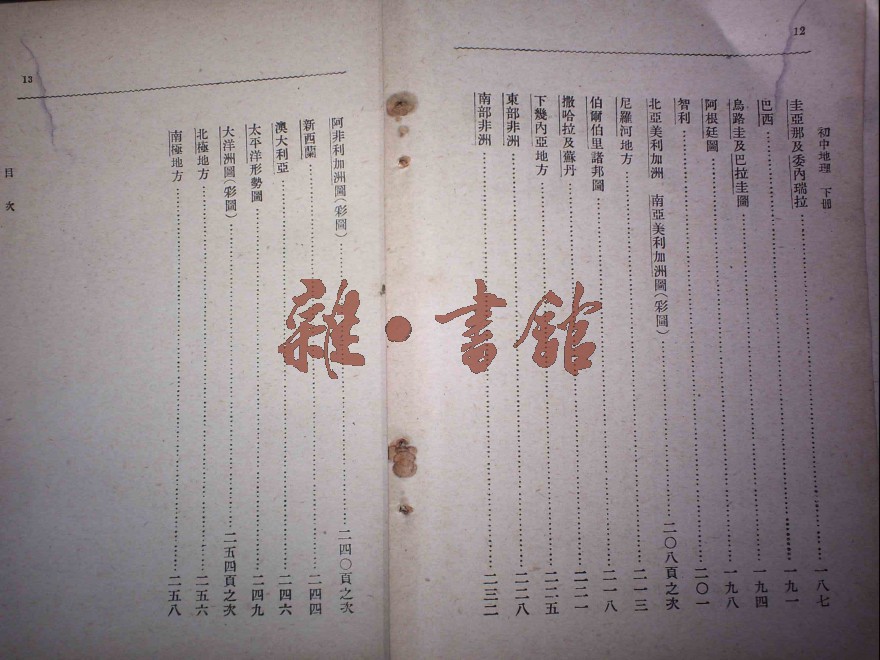 12
初中地理 下冊
圭亞那及委內瑞拉……一八七
巴西……一九一
烏路圭及巴拉圭圖……一九四
阿根廷圖……一九八
智利……二〇一
北亞美利加洲 南亞美利加洲圖（彩圖）……二〇八頁之次
尼羅河地方……二一三
伯爾伯里諸邦圖……二一八
撒哈拉及蘇丹……二二一
下幾內亞地方……二二五
東部非洲……二二八
南部非洲……二三二
阿非利加洲圖（彩圖）……二四〇頁之次
新西蘭……二四四
澳大利亞……二四六
太平洋形勢圖……二四九
大洋洲圖（彩圖）……二五四頁之次
北極地方……二五六
南極地方……二五八
目次
13
雜・書館